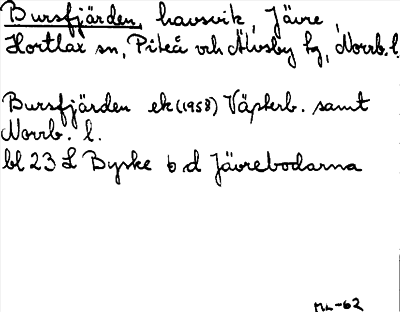 Bursfjärden, havsvik, Jävre,
Hortlax sn, Piteå och Älvsby tg, Norrb. l.
Bursfjärden ek (1958) Västerb. samt
Norrb. l.
bl 23 L Byske 6 d Jävrebodarna
ML-62